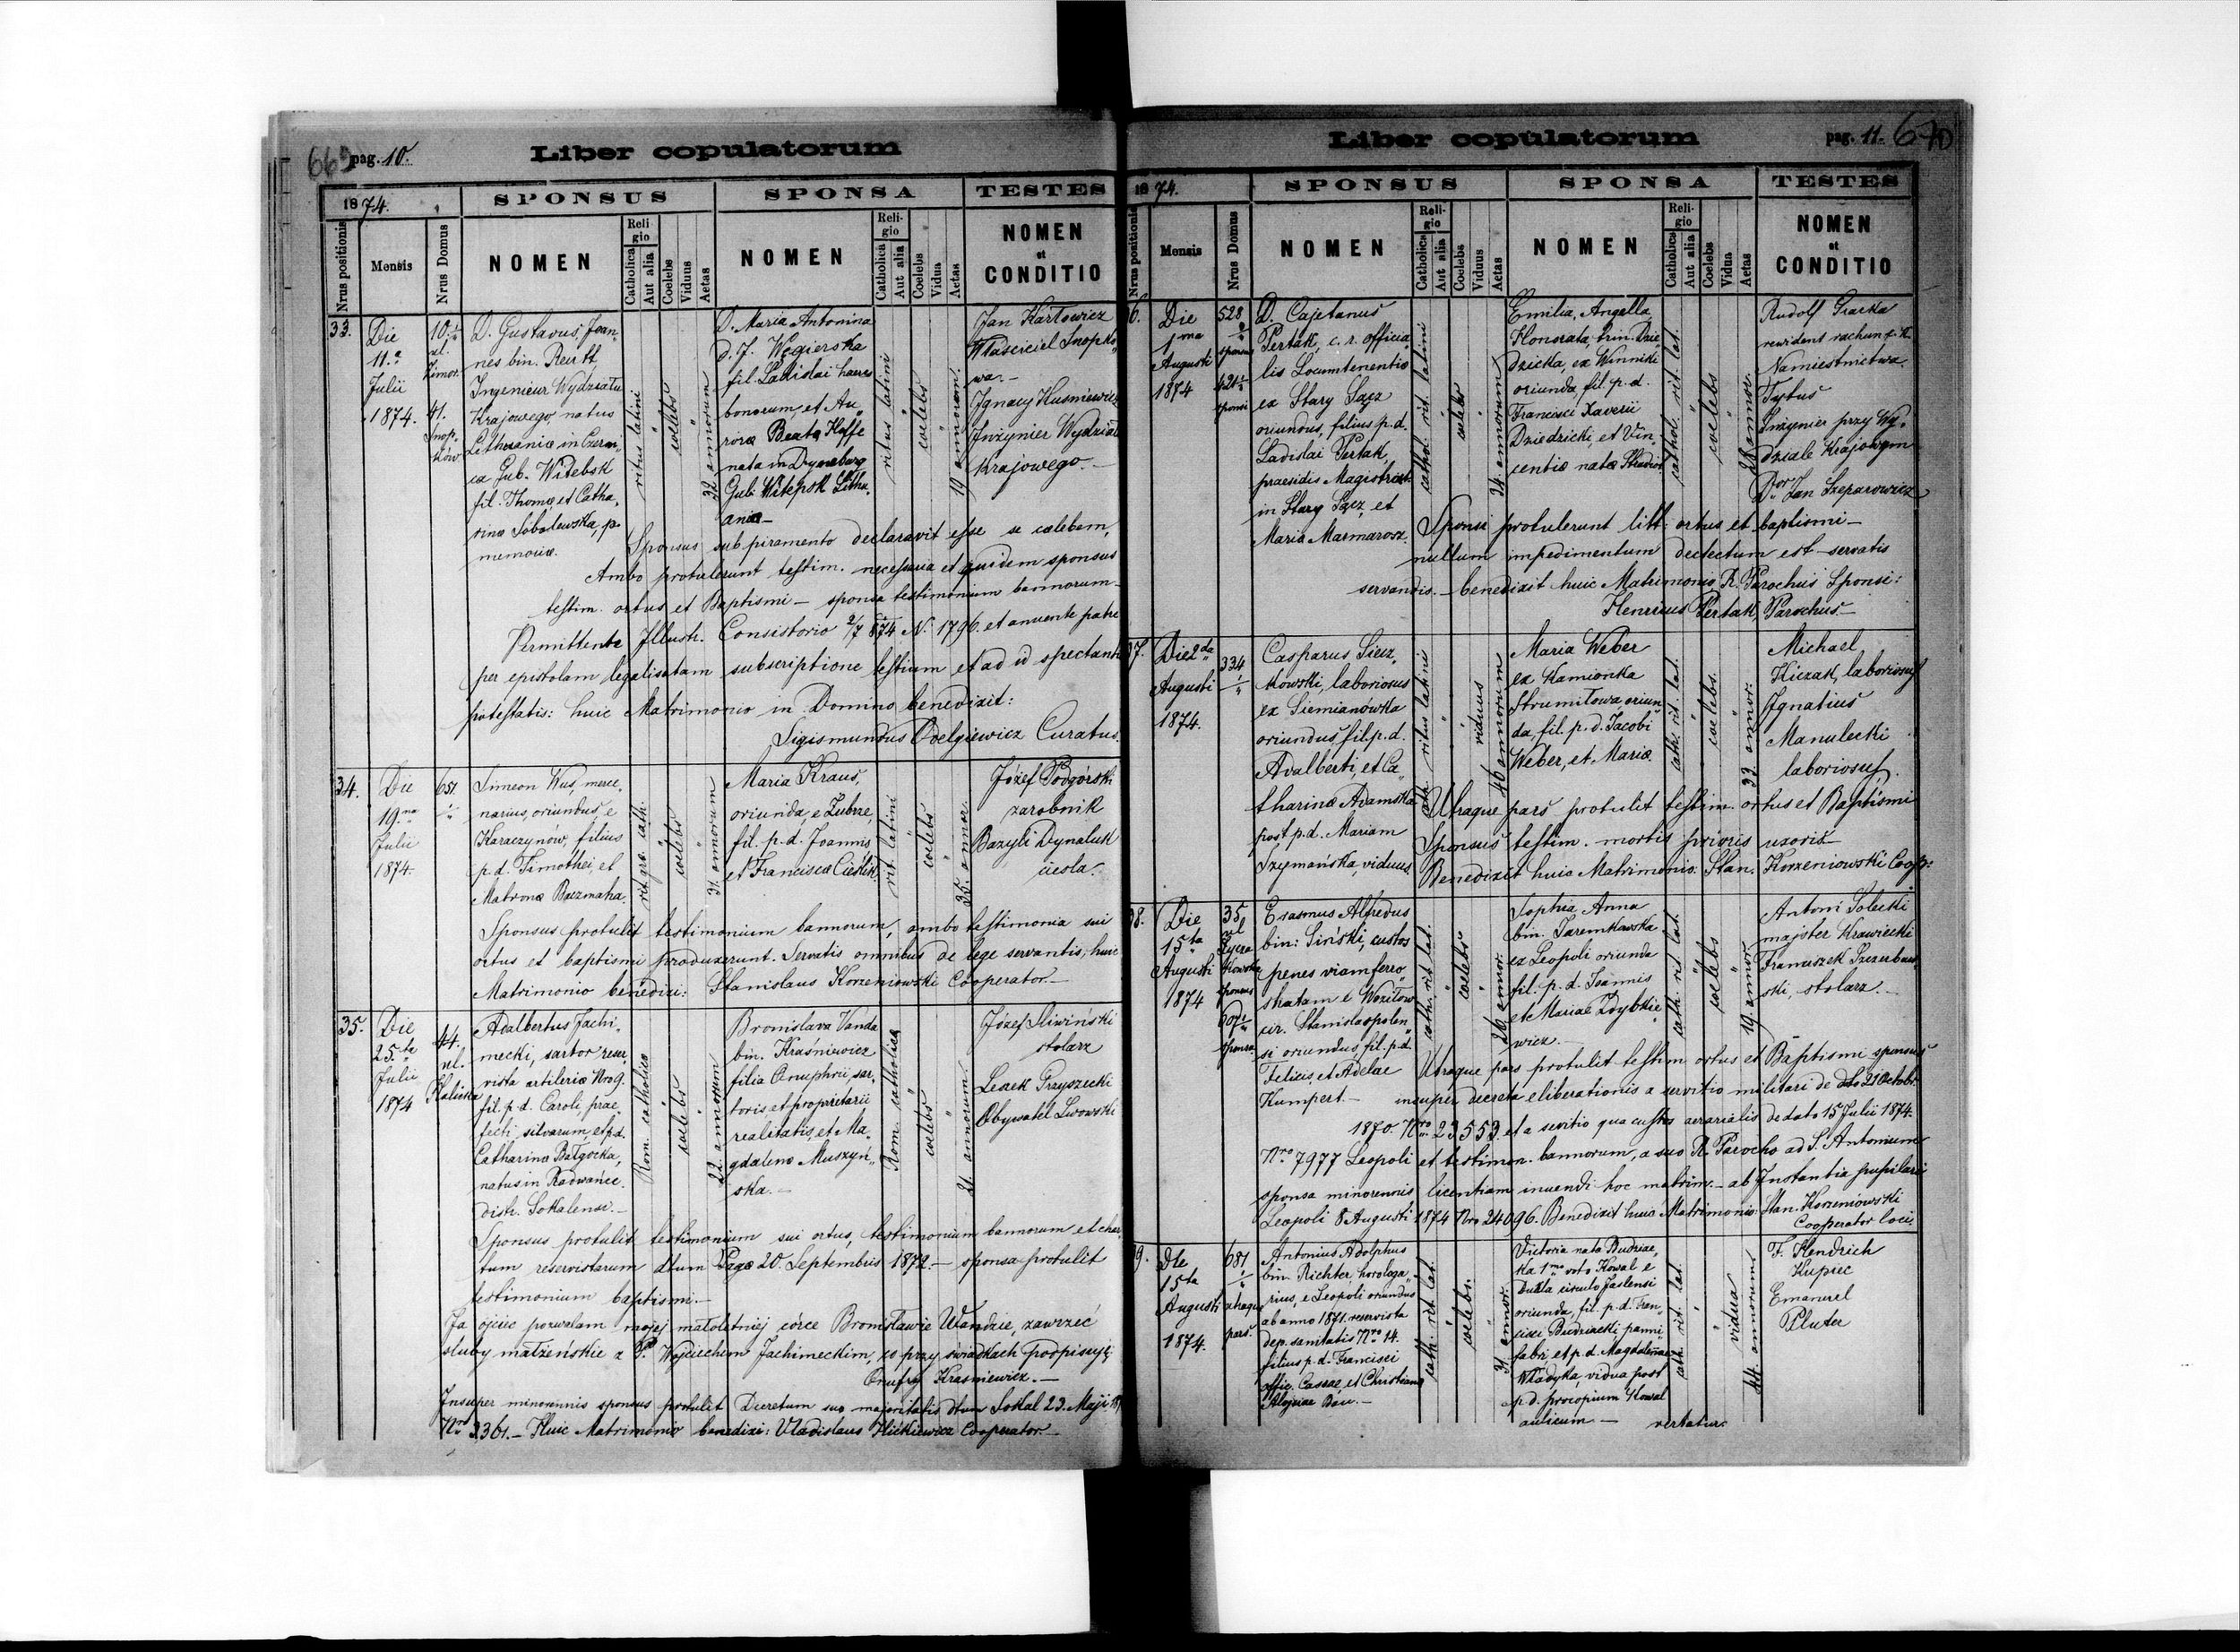 pag. 10.
Liber copulatorum
1874.
SPONSUS
SPONSA
TESTES
Nrus positionis
Mensis
Nrus Domus
NOMEN
Religio
Catholica
Aut alia
Coelebs
Viduus
Aetas
NOMEN
Religio
Catholica
Aut alia
Coelebs
Vidua
Aetas
NOMEN
et
CONDITIO
33.
Die
11a
Julii
1874.
10
ul.
Zimor.
41.
Snop-
ków
D. Gustavus Joan
nes bin. Reutt,
Ingenieur Wydziału
Krajowego, natus
Lithuaniæ in
ex Gub. Witebsk
fil. Thomæ et Catha-
rinæ Sobolewska, p.
memoriæ.
ritus latini
coelebs
32 annorum
D. Maria Antonina
d. J. Węgierska
fil. Ladislai haeres
bonorum, et Au
roræ Beata Hoffe
nata in Dyneburg
Gub. Witepsk Lithu-
aniæ
ritus latini
coelebs
19 annorum.
Jan Karłowicz
Właściciel Snopko
wa.
Ignacy Kuśniewicz
Inżynier Wydziału
Krajowego.
Sponsus sub juramento declaravit esse se cœlebem,
Ambo protulerunt testim. necessaria et quidem sponsus
testim. ortus et Baptismi – sponsa testimonium bannorum
Permittente Illustr. Consistorio 2/7 874 N. 1796. et anuente patre
per epistolam legalisatam subscriptione testium et ad id spectant
potestatis: huic Matrimonio in Domino benedixit:
Sigismundus Odelgiewicz Curatus.
34.
Die
19na
Julii
1874.
651
Simeon Wus, merce-
narius, oriundus, e
Karaczynów, filius
p. d. Timothei, et
Matronæ Baczmaha.
rit. gr. cath.
coelebs
31 annorum
Maria Kraus,
oriunda, e Zubrze,
fil. p. d. Joannis
et Francisca Cieślik.
rit. latini
coelebs
35. annor.
Józef Podgórski
zarobnik
Bazyli Dynaluk
cieśla.
Sponsus protulit testimonium bannorum, ambo testimonia sui
ortus et baptismi produxerunt. Servatis omnibus de lege servantis, huic
Matrimonio benedixi: Stanislaus Korzeniowski Cooperator.
35.
Die
25ta
Julii
1874
44.
ul.
Adalbertus Jachi-
mecki, sartor reser
vista artileriæ Nro 9.
fil. p. d. Caroli prae-
fecti silvarum, et p. d.
Catharinæ Bałgocka,
natus in Radwańce.
distr. Sokalensi.
Rom. catholica
coelebs
22 annorum
Bronislava Vanda
bin. Kraśniewicz
filia Onuphrii, sar-
toris, et proprietarii
realitatis, et Ma-
gdalenæ Muszyń-
ska.
Rom. catholica
coelebs
21. annorum.
Józef Śliwiński
stolarz
Lezek Przyszecki
Obywatel Lwowski
Sponsus protulit testimonium sui ortus, testimonium bannorum et char
tum reservistarum dtum Pragæ 20. Septembris 1872. – sponsa protulit
testimonium baptismi.
Ja ojciec pozwalam mojej małoletniej córce Bronisławie Wandzie, zawrzeć
śluby małżeńskie z P. Wojciechem Jachimeckim, co przy świadkach podpisuję
Onufry Kraśniewicz.
Insuper minorennis sponsus protulit Decretum suæ majoritatis dtum Sokal 23. Maji
Nro 3361. – Huic Matrimonio benedixi: Vladislaus Cooperator.
Liber copulatorum
pag. 11.
670
1874.
SPONSUS
SPONSA
TESTES
Nrus positionis
Mensis
Nrus Domus
NOMEN
Religio
Catholica
Aut alia
Coelebs
Viduus
Aetas
NOMEN
Religio
Catholica
Aut alia
Coelebs
Vidua
Aetas
NOMEN
et
CONDITIO
6.
Die
1ma
Augusti
1874
528
sponsæ
421
sponsi
D. Cajetanus
Pertak, c. r. officia
lis Locumtenentiæ
ex Stary Sącz
oriundus, filius p. d.
Ladislai Pertak,
praesidis Magistrat.
in Stary Sącz, et
Mariæ Marmarosz.
cathol. rit. latini
coelebs
34. annorum
Emilia, Angella,
Honorata, trin. Dzie
dzicka, ex Winniki
oriunda, fil. p. d.
Francisci Xaverii
Dziedzicki, et Vin-
centiæ natæ
cathol. rit. lat.
coelebs
annor.
Rudolf Gracka
rewident rachun. c. k.
Namiestnictwa.
Tytus
Inżynier przy Wy-
dziale Krajowym
Dor Jan Szeparowicz
Sponsi protulerunt litt. ortus et baptismi –
nullum impedimentum dectectum est – servatis
servandis. – benedixit huic Matrimonio R. Parochus Sponsi:
Henricus Pertak, Parochus.
37.
Die 2da
Augusti
1874.
334
Casparus Siecz-
kowski, laboriosus
ex Siemianówka
oriundus fil. p. d.
Adalberti, et Ca
tharinæ Adamska
post p. d. Mariam
Szymańska, viduus.
cath. ritus latini
viduus
46 annorum
Maria Weber
ex Kamionka
Strumiłowa oriun
da, fil. p. d. Jacobi
Weber, et Mariæ
cath. rit. lat.
coelebs.
33. annor.
Michael
Kiczak, laboriosus
Ignatius
Manulecki
laboriosus.
Utraque pars protulit testim. ortus et Baptismi
Sponsus testim. mortis prioris uxoris
Benedixit huic Matrimonio: Stan. Korzeniowski Coop:
38.
Die
15ta
Augusti
1874
35
ul
Łycza
kowska
sponsus
607
sponsa
Erasmus Alfredus
bin: Siński, custos
penes viam ferro
stratam e
cir. Stanislaopolen
si oriundus, fil. p. d.
Felicis, et Adelae
Kumpert.
cath. rit. lat.
coelebs
26 annor.
Sophia Anna
bin. Zaremkowska
ex Leopoli oriunda
fil. p. d. Joannis
et Mariae Zdybkie-
wicz.
cath. rit. lat.
coelebs
19. annor.
Antoni Solecki
majster Krawiecki
Franciszek Szczerbow-
ski, stolarz.
Utraque pars protulit testim ortus et Baptismi sponsus
insuper decreta eliberationis a servitio militari de dato 21 Octobr.
1870. Nro 23553. et a sevitio qua custos aerarialis dedato 15 Julii 1874.
Nro 7977 Leopoli et testimon. bannorum, a suo R. Parocho ad S. Antonium
sponsa minorennis licentiam inuendi hoc matrim. – ab Instantia pupilari
Leopoli 8 Augusti 1874 Nro 24096. Benedixit huic Matrimonio: Stan. Korzeniowski
Cooperator loci.
9.
Die
15ta
Augusti
1874.
681
utraque
pars.
Antonius Adolphus
bin. Richter, horologa
rius, e Leopoli oriundus
ab anno 1871. reservista
dep. sanitatis Nro 14.
filius p. d. Francisci
offic. Cassæ, et Christianæ
Aloysiae Bau.
cath. rit. lat.
coelebs.
31 annor.
Victoria nata Budziac-
ka 1mo voto Kowal e
Dukla circulo Jaslensi
oriunda, fil. p. d. Fran-
cisci Budziacki panni
fabri, et p. d. Magdalenae
Władyka, vidua post
p. d. procopium Kowal
aulicum –
cath. rit. lat.
vidua
44 annorum
F. Kendrich
Kupiec
Emanuel
Pluter
vertatur.